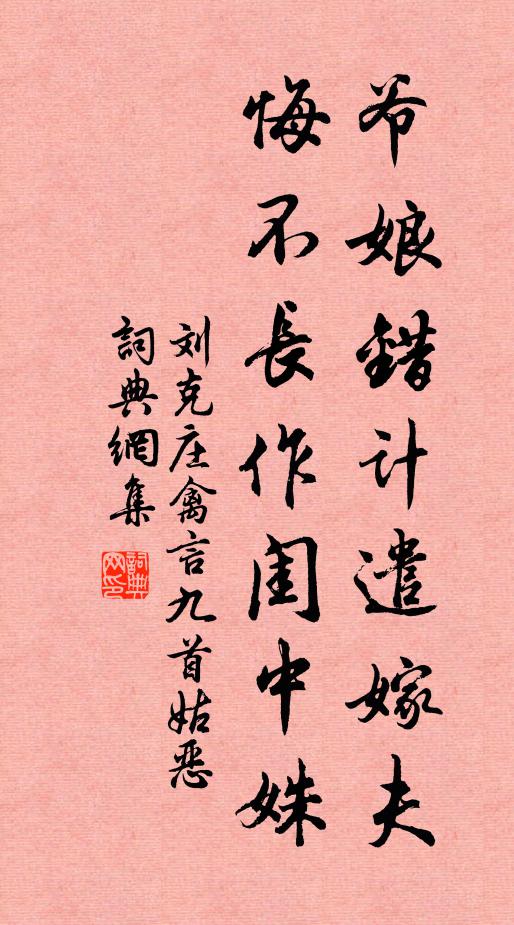 爷娘錯计遣嫁夫
悔不長作闺中姝
刘克庄禽言九首姑恶
詞典網集
詞典
网印